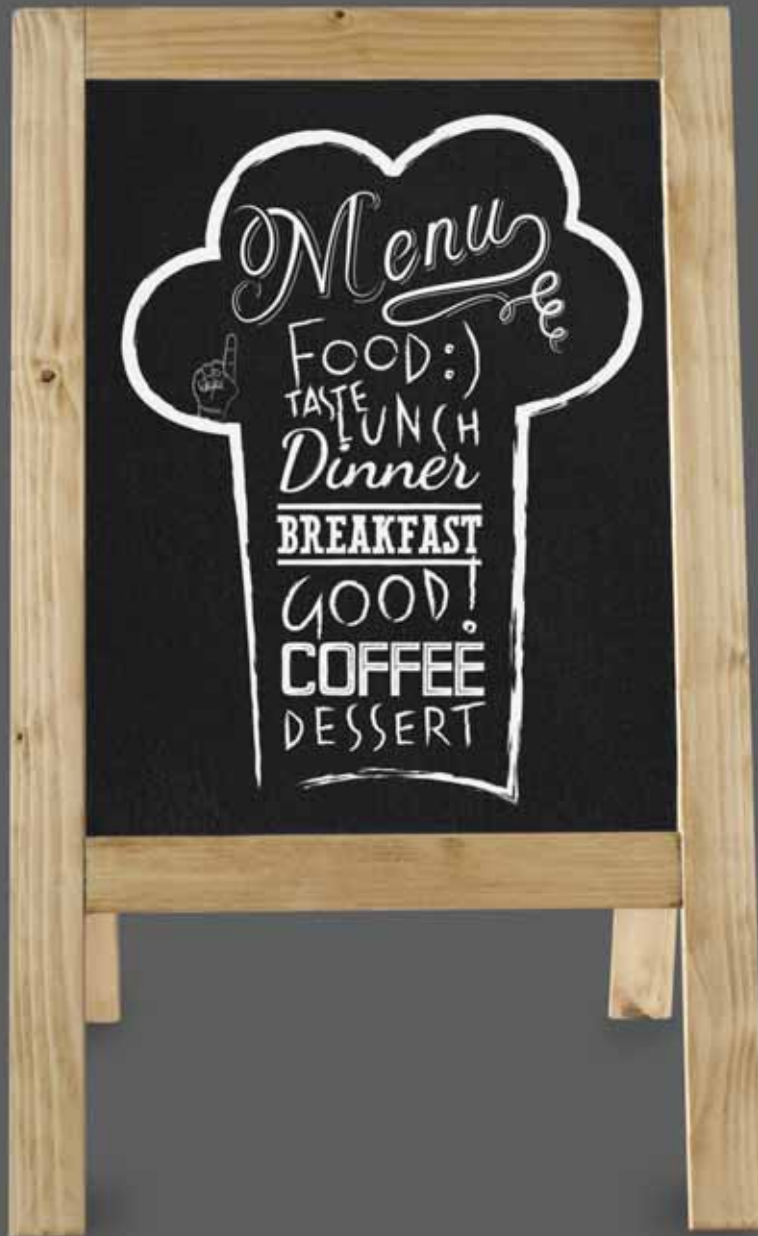 Menu
FOOD:)
TASTE
LUNCH
Dinner
BREAKFAST
GOOD!
COFFEE
DESSERT